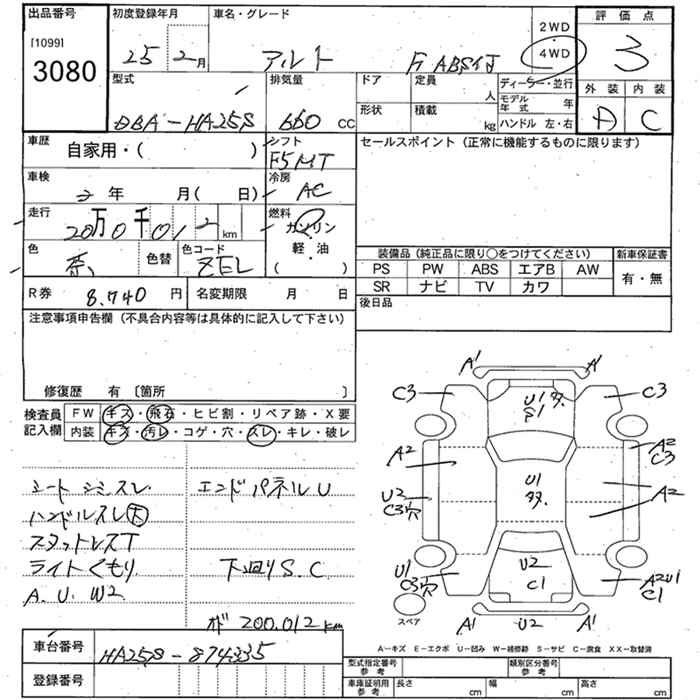 出品番号
[1099]
3080
初度登録年月
25 2月
車名・グレード
アルト F ABS付
2WD
4WD
評価点
3
外装 内装
A C
型式
DBA-HA25S
排気量
660 cc
ドア
定員
人
形状
積載
kg
ディーラー・並行
モデル年式 年
ハンドル 左・右
車歴
自家用・( )
シフト
F5MT
車検
2年 月( 日)
冷房
AC
走行
20万0千012km
燃料
ガソリン
軽・油
( )
色
赤
色替
色コード
ZEL
R券 8.740円
名変期限 月 日
セールスポイント (正常に機能するものに限ります)
装備品 (純正品に限り○をつけてください)
PS PW ABS エアB AW
SR ナビ TV カワ
新車保証書
有・無
後日品
注意事項申告欄 (不具合内容等は具体的に記入して下さい)
修復歴 有 〔箇所 〕
検査員記入欄
FW キズ・飛石・ヒビ割・リペア跡・X要
内装 キズ・汚レ・コゲ・穴・スレ・キレ・破レ
シートシミスレ
ハンドルスレ大
スタットレスT
ライトくもり
A.U.W2
エンドパネルU
下廻りS.C
ﾒﾀ 200,012km
A1 A1
C3 C3
U1多
P1
A2
A2
C3
U1
多.
U2
C3穴
A2
U1
C3穴
U2
C1
A2U1
C1
A1 U2 A1
スペア
A-キズ E-エクボ U-凹み W-補修跡 S-サビ C-腐食 XX-取替済
車台番号
HA25S-874335
登録番号
型式指定番号参考
類別区分番号参考
車庫証明用参考
長さ cm
幅 cm
高さ cm